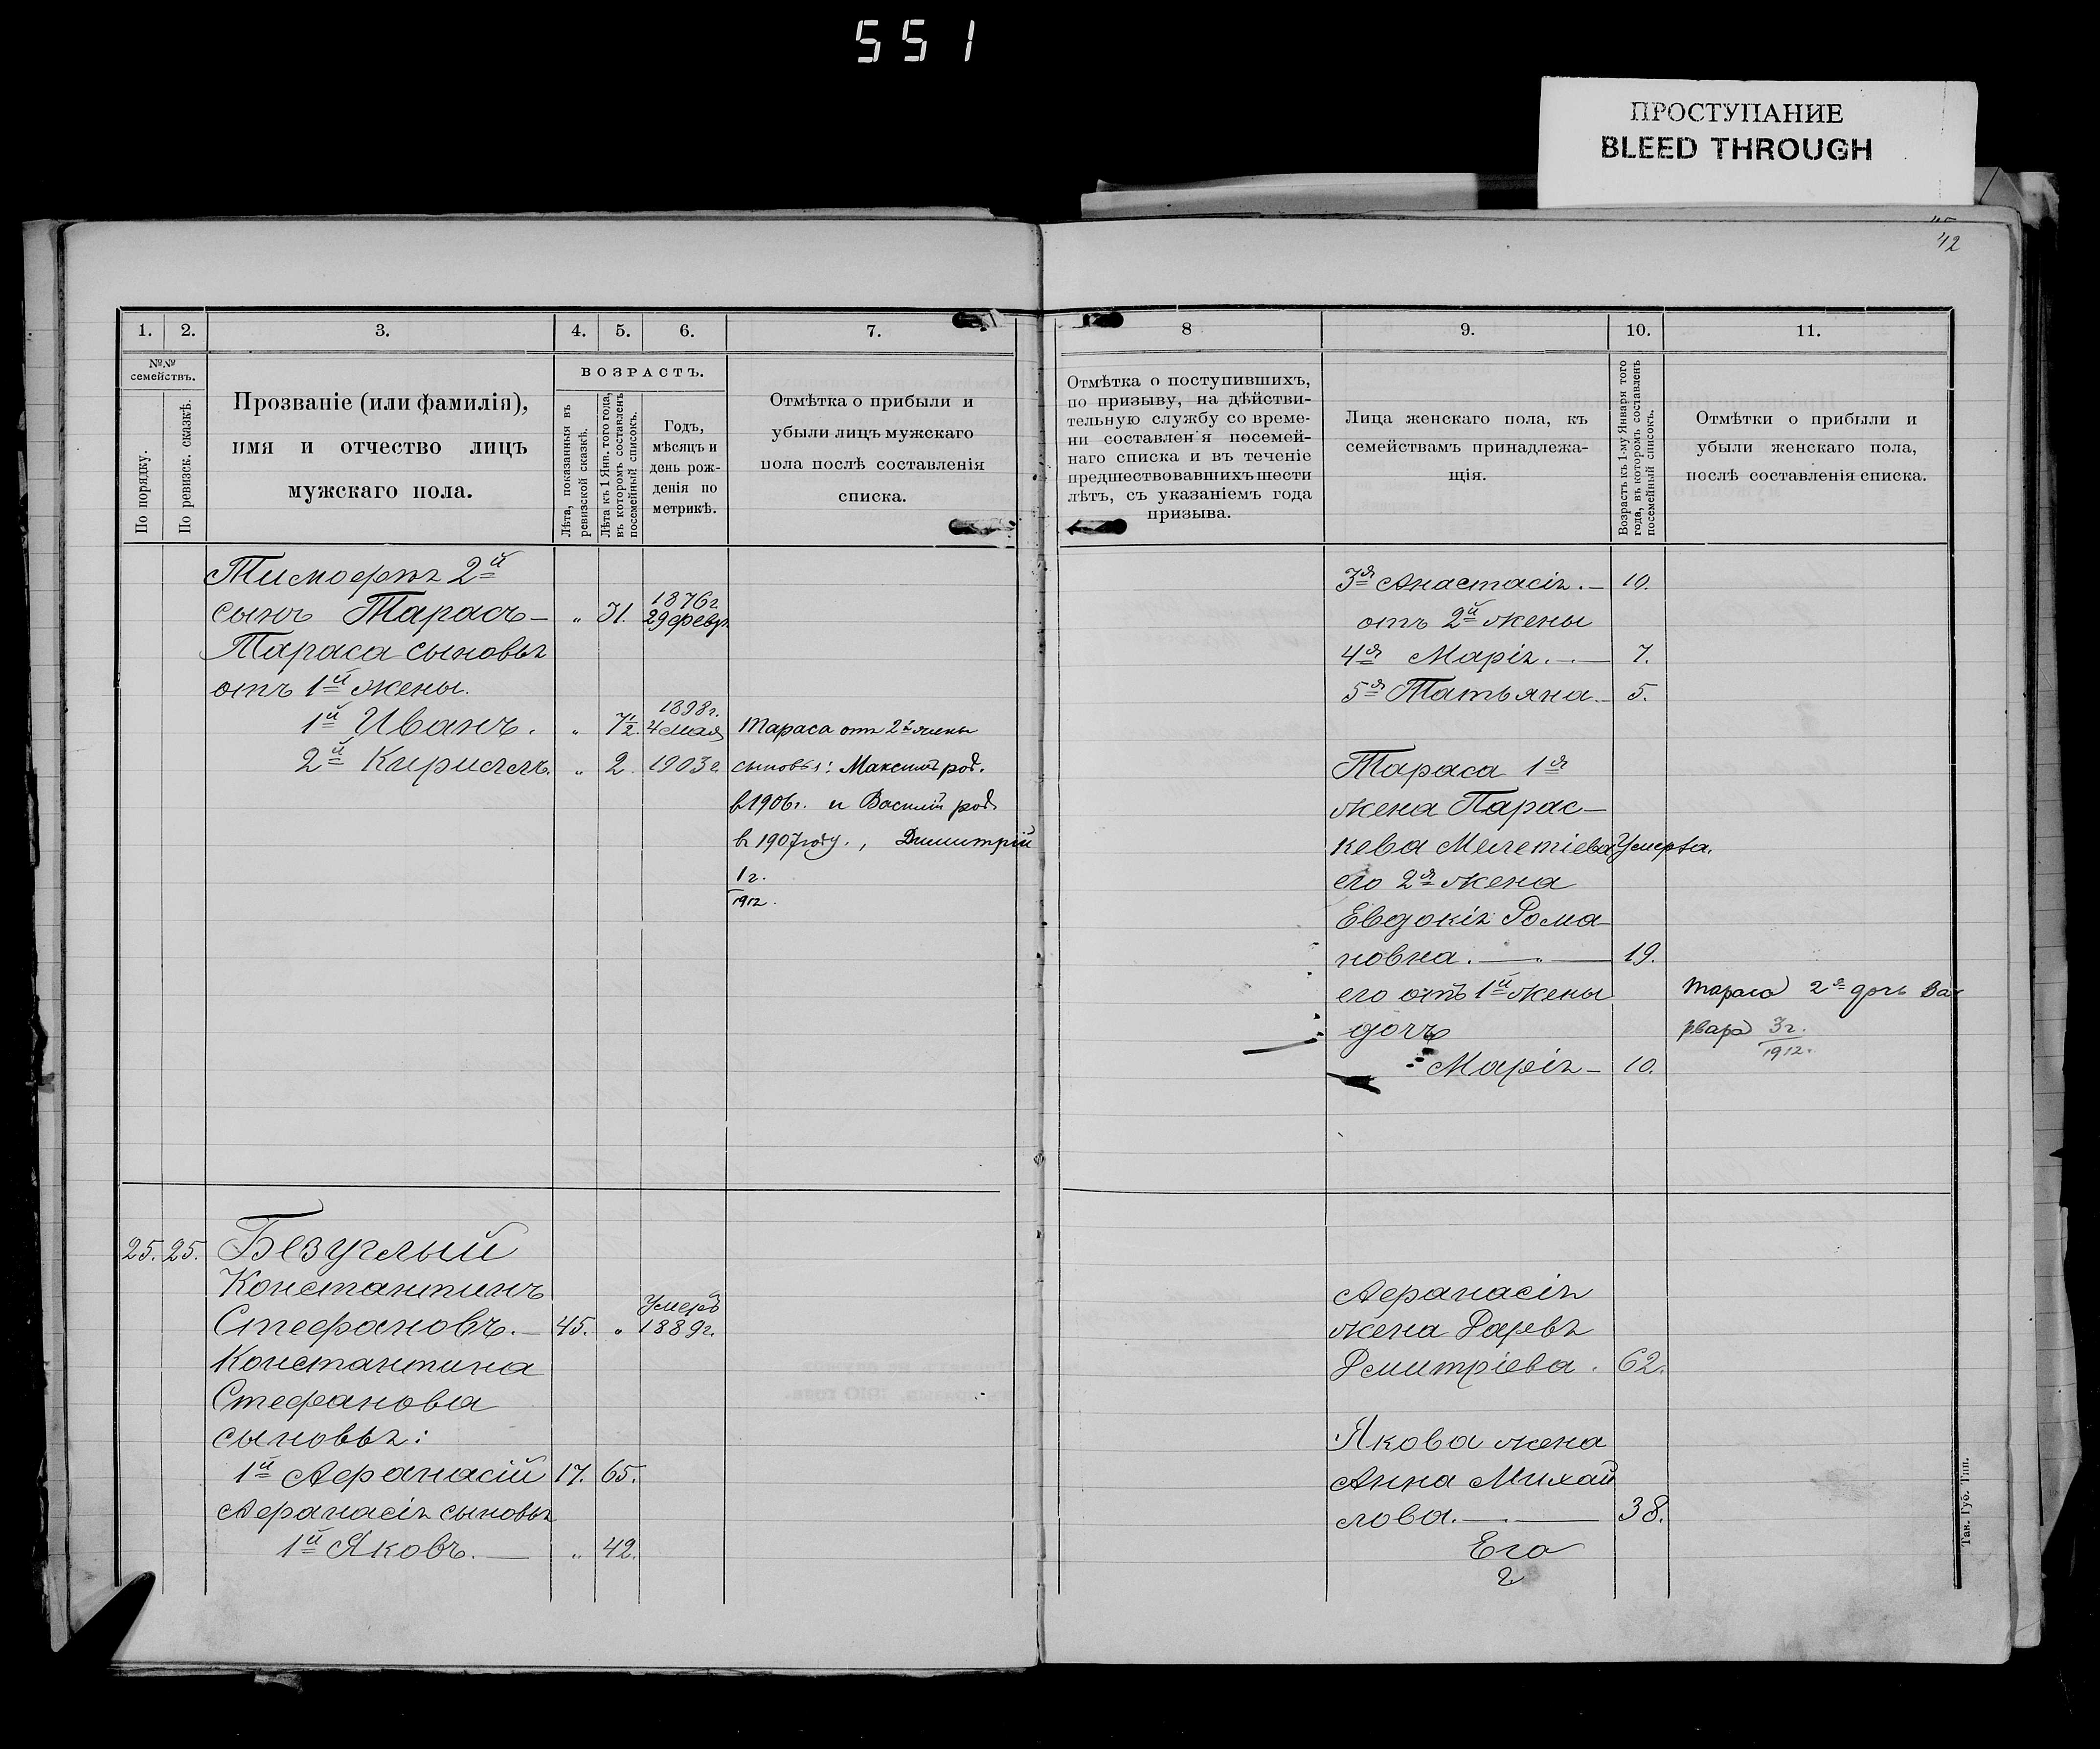 551
ПРОСТУПАНИЕ
BLEED THROUGH
42
1. 2. 3. 4. 5. 6. 7.
№№ семействъ.
По порядку.
По ревизск. сказкѣ.
Прозваніе (или фамилія),
имя и отчество лицъ
мужскаго пола.
ВОЗРАСТЪ.
Лѣта, показанныя въ
ревизской сказкѣ.
Лѣта къ 1 Янв. того года,
въ которомъ составленъ
посемейный списокъ.
Годъ,
мѣсяцъ и
день рож-
денія по
метрикѣ.
Отмѣтка о прибыли и
убыли лицъ мужскаго
пола послѣ составленія
списка.
Тимофея 2й
сынъ Тарасъ— „ 31. 1876г 29 февр.
Тараса сыновья
отъ 1й жены.
1й Иванъ. „ 7½. 1898г. 4 мая
2й Кириллъ. „ 2. 1903г.
Тараса от 2й жены
сыновья: Максим род.
в 1906г. и Василий род
в 1907 году., Димитрій
1г.
1912.
25. 25. Безуглый
Константинъ
Стефановъ.— 45. „ Умеръ 1889г.
Константина
Стефанова
сыновья:
1й Афанасій 17. 65.
Афанасія сыновья
1й Яковъ.— „ 42.
8 9. 10. 11.
Отмѣтка о поступившихъ,
по призыву, на дѣйстви-
тельную службу со време-
ни составленія посемей-
наго списка и въ теченіе
предшествовавшихъ шести
лѣтъ, съ указаніемъ года
призыва.
Лица женскаго пола, къ
семействамъ принадлежа-
щія.
Возрастъ къ 1-му Января того
года, въ которомъ составленъ
посемейный списокъ.
Отмѣтки о прибыли и
убыли женскаго пола,
послѣ составленія списка.
3я Анастасія.— 10.
отъ 2й жены
4я Марія.— 7.
5я Татьяна.— 5.
Тараса 1я
жена Парас—
кева Мелетіева Умерла.
его 2я жена
Евдокія Рома—
новна.—„— 19.
его отъ 1й жены
дочь
Марія— 10.
Тараса 2я дочь Ва-
рвара 3г.
1912.
Афанасія
жена Дарья
Дмитріева. 62.
Якова жена
Анна Михай
лова.— 38.
Его
Тав. Губ. Тип.